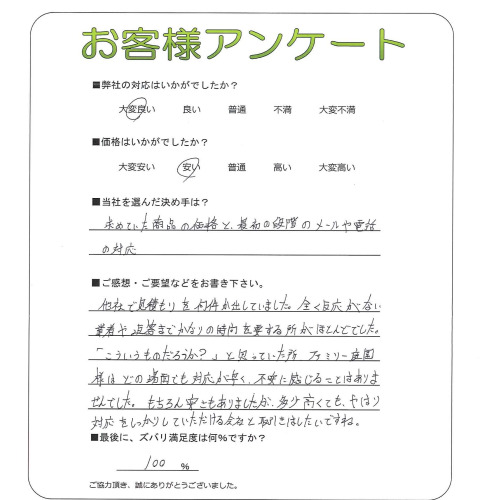 お客様アンケート
■弊社の対応はいかがでしたか？
大変良い 良い 普通 不満 大変不満
■価格はいかがでしたか？
大変安い 安い 普通 高い 大変高い
■当社を選んだ決め手は？
求めていた商品の価格と、最初の段階のメールや電話
の対応
■ご感想・ご要望などをお書き下さい。
他社で見積もりを何件か出していました。全く反応がない
業者や返答までかなりの時間を要する所がほとんどでした。
「こういうものだろうか？」と思っていた所 ファミリー庭園
様はどの場面でも対応が早く、不安に感じることはありま
せんでした。もちろん安さもありましたが、多少高くても、やはり
対応をしっかりしていただける会社と取引きはしたいですね。
■最後に、ズバリ満足度は何%ですか？
100 %
ご協力頂き、誠にありがとうございました。